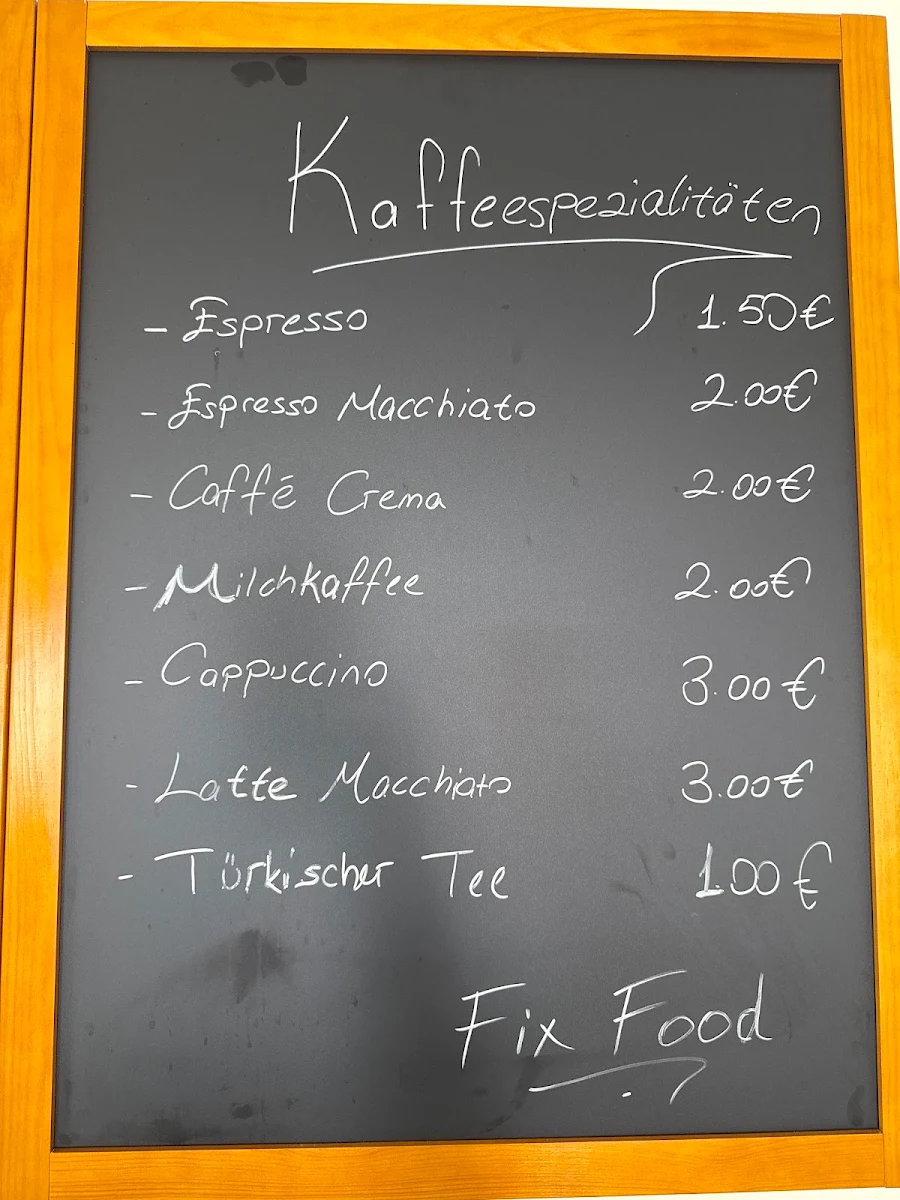 Kaffeespezialitäten
- Espresso 1.50€
- Espresso Macchiato 2.00€
- Caffé Crema 2.00€
- Milchkaffee 2.00€
- Cappuccino 3.00€
- Latte Macchiato 3.00€
- Türkischer Tee 1.00€
Fix Food